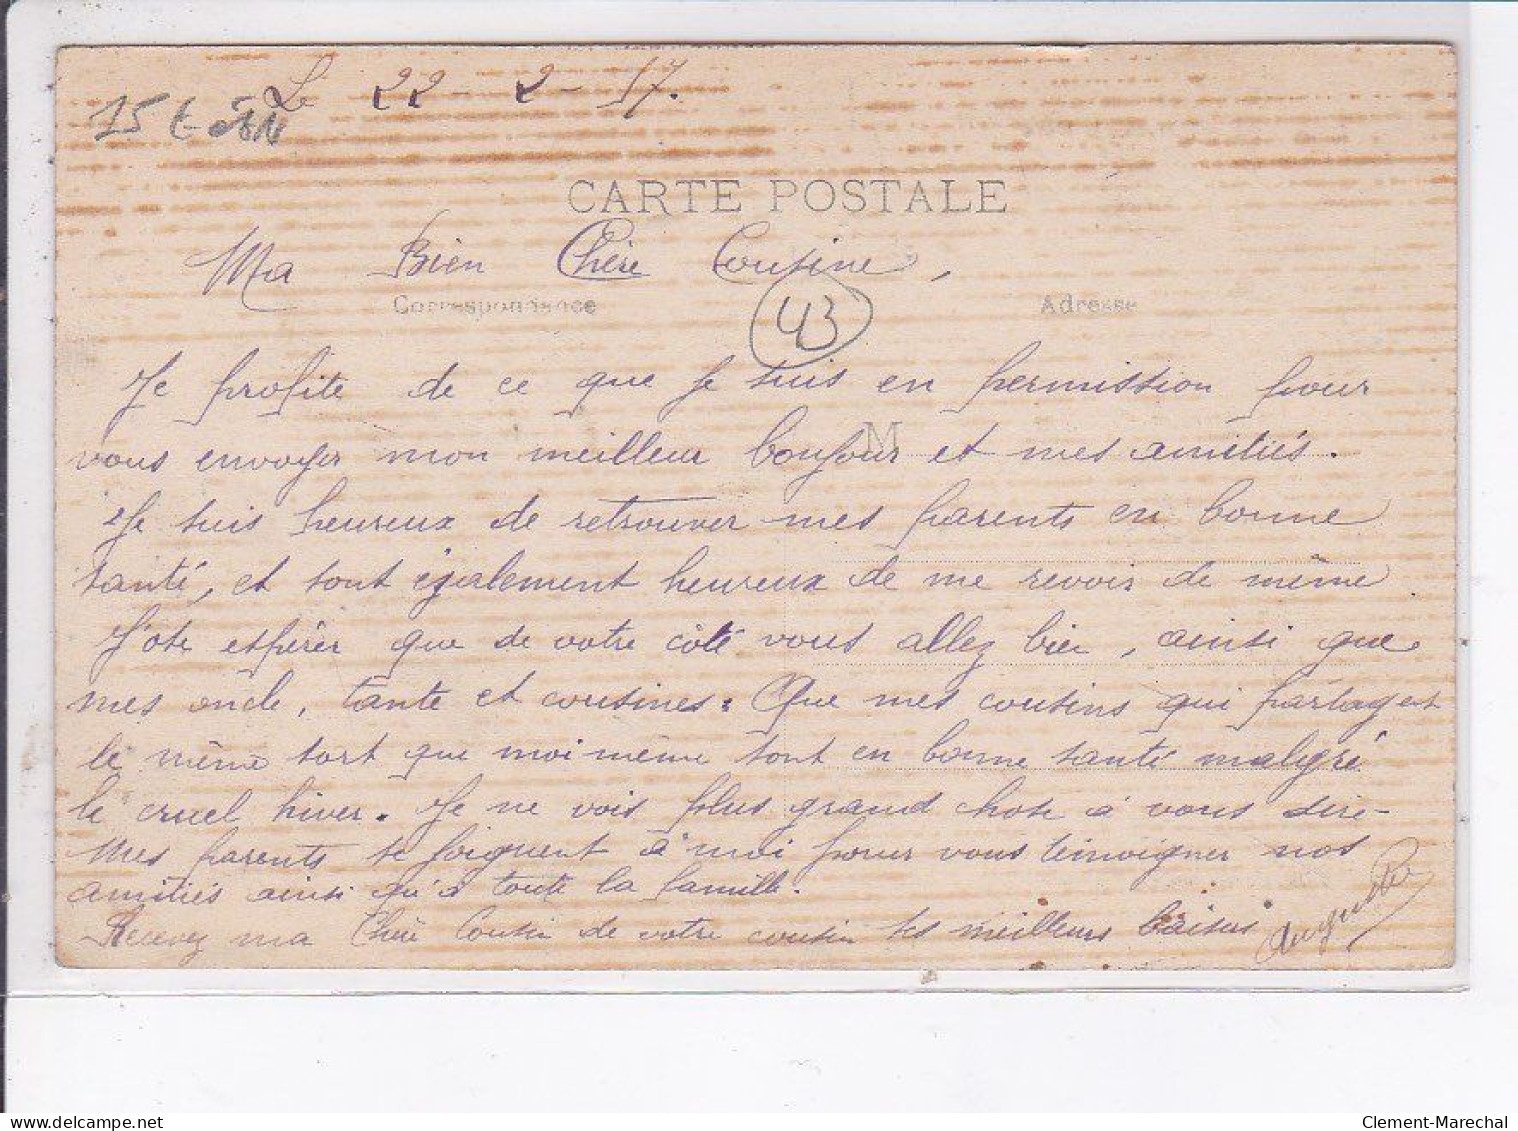 Le 22-2-17.
15 €
CARTE POSTALE
Ma Bien Chère Cousine,
Correspondance
43
Adresse
Je profite de ce que je suis en permission pour
M
vous envoyer mon meilleur bonjour et mes amitiés.
Je suis heureux de retrouver mes parents en bonne
santé, et sont également heureux de me revoir de même
J'ose espérer que de votre côté vous allez bien, ainsi que
mes oncle, tante et cousines. Que mes cousins qui partagent
le même sort que moi même sont en bonne santé malgré
le cruel hiver. Je ne vois plus grand chose à vous dire-
Mes parents se joignent à moi pour vous témoigner nos
amitiés ainsi qu'à toute la famille.
Recevez ma Chère Cousin de votre cousin ses meilleurs baisers
Auguste
Clement-Marechal